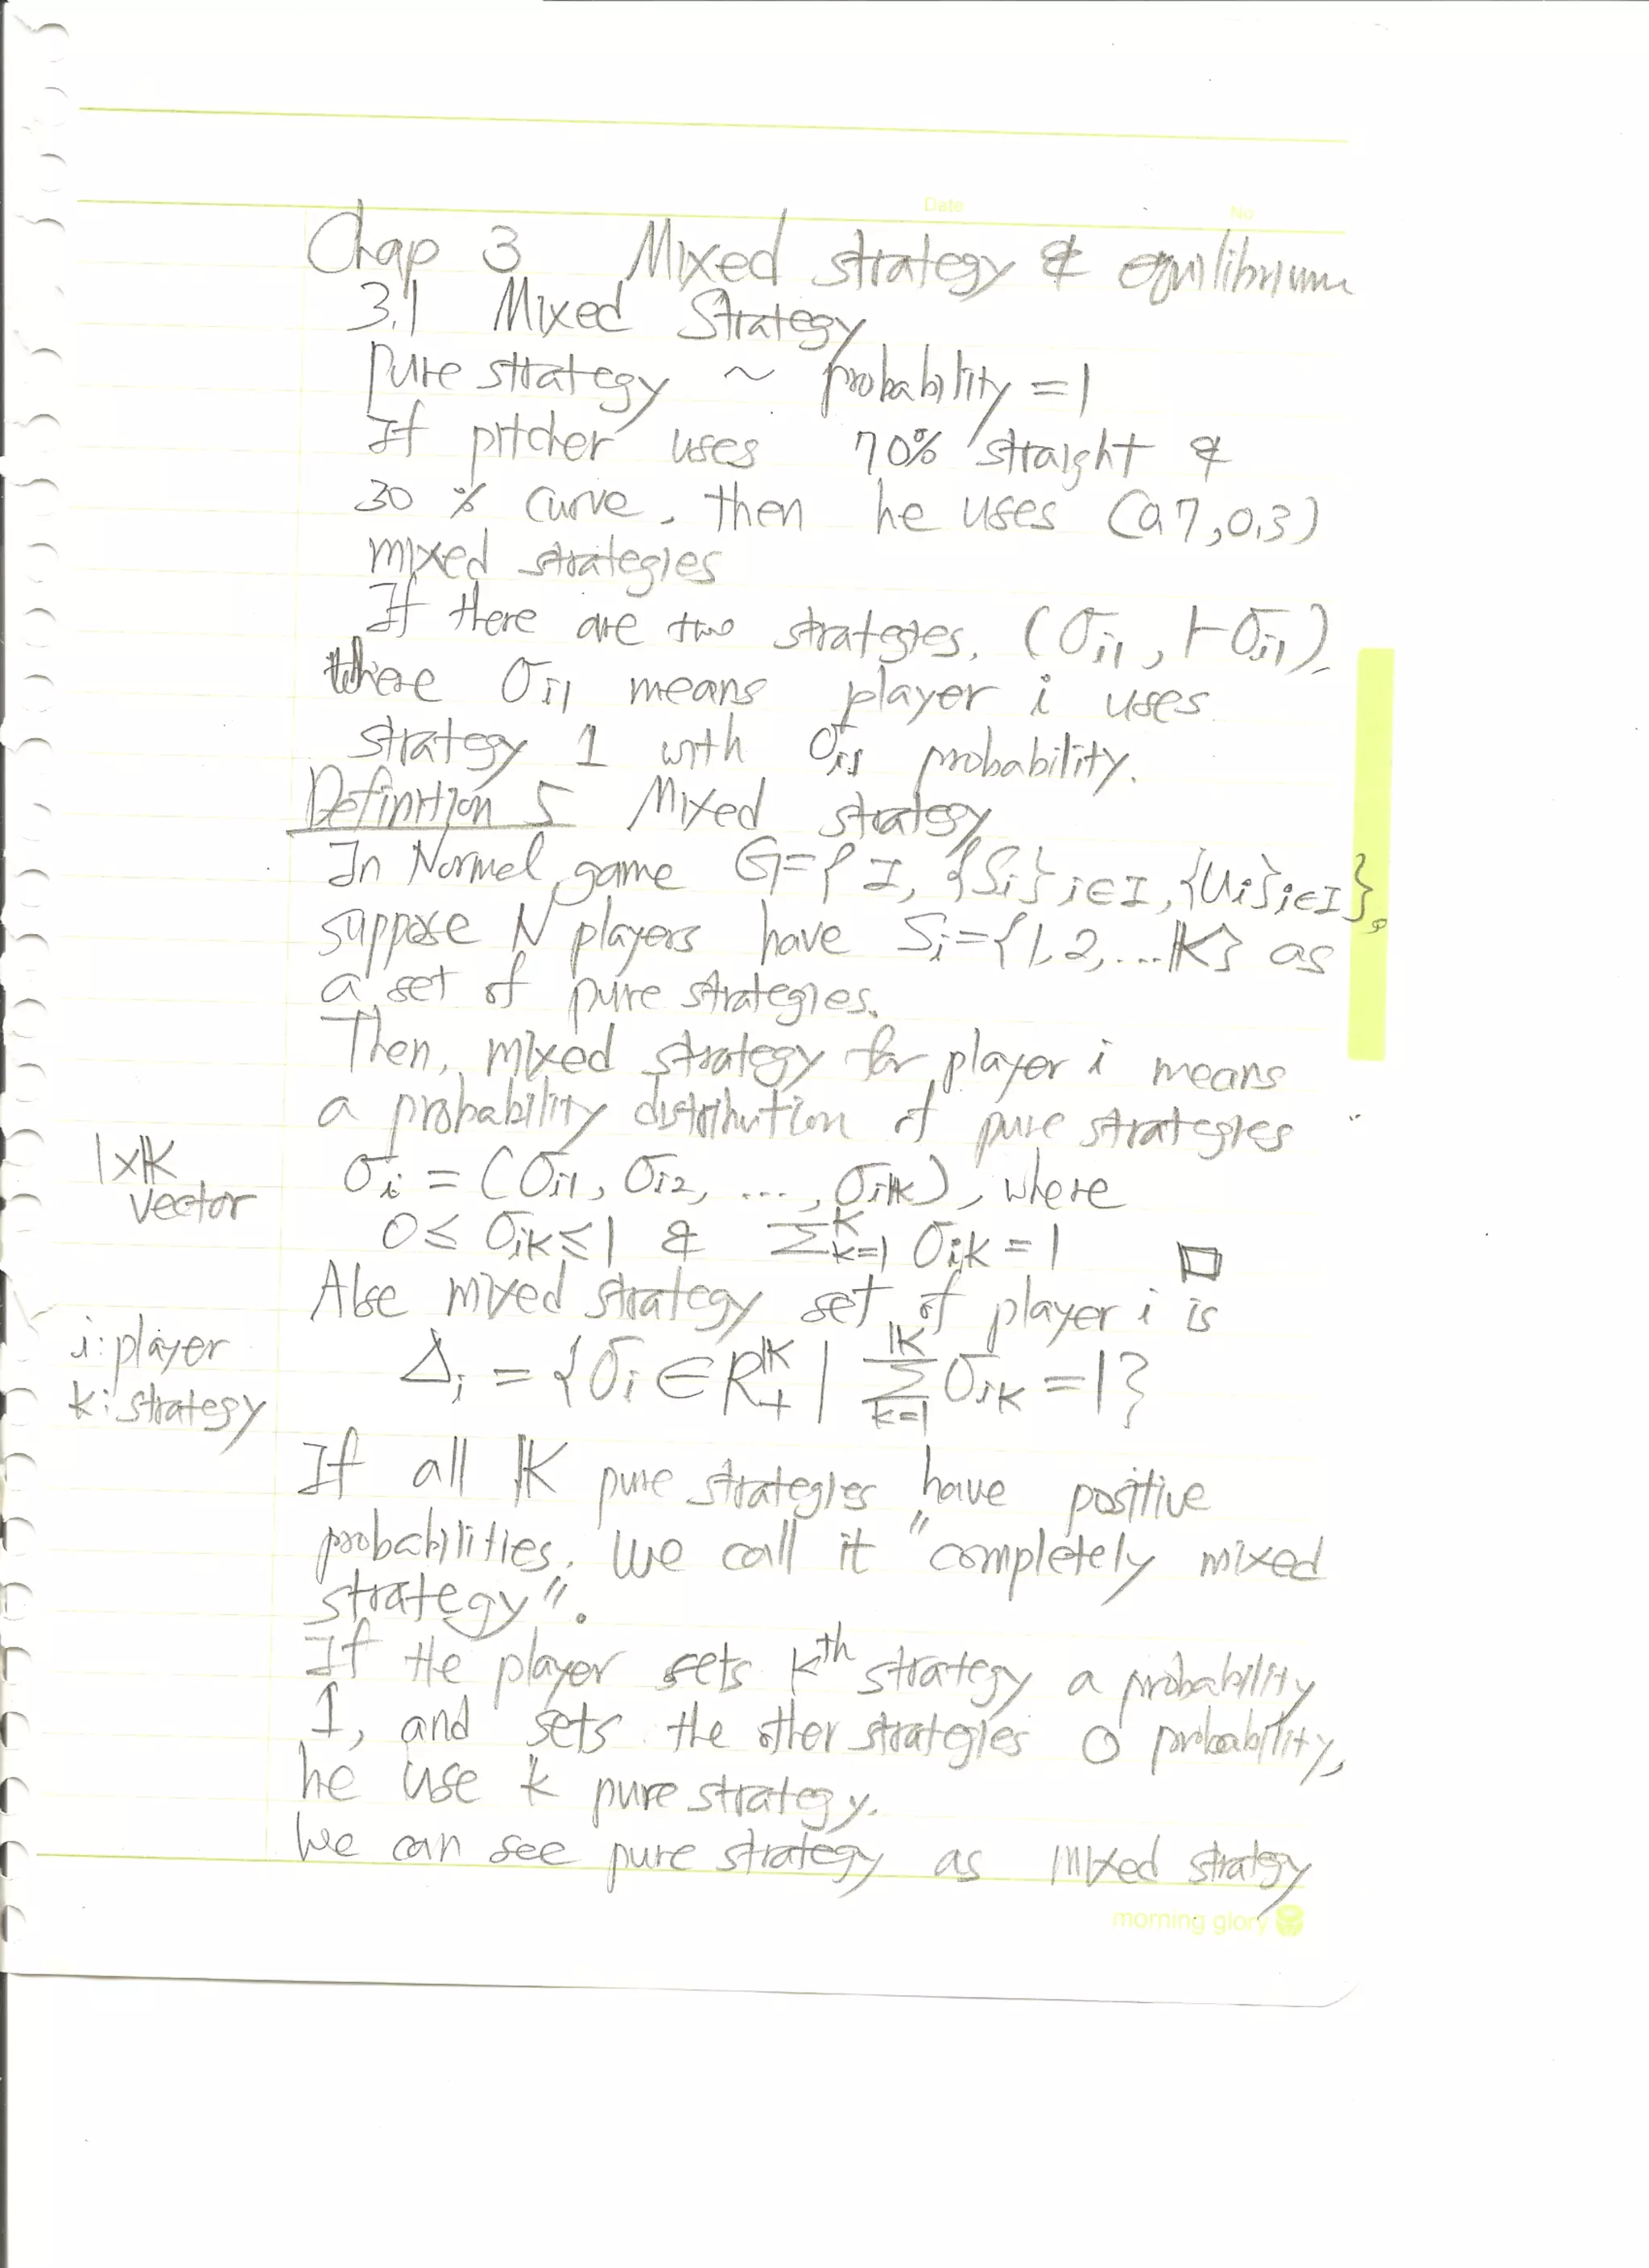 Date
No
Chap 3 Mixed strategy & equilibrium
3.1 Mixed Strategy
pure strategy ~ probability = 1
If pitcher uses 70% straight &
30 % curve, then he uses (0.7, 0.3)
mixed strategies
If there are two strategies, (σi1, 1-σi1),
where σi1 means player i uses
strategy 1 with σi1 probability.
Definition 5 Mixed strategy
In Normal game G={ I, {Si}i∈I, {Ui}i∈I},
suppose N players have Si={1,2,...𝕂} as
a set of pure strategies.
Then, mixed strategy for player i means
a probability distribution of pure strategies
1×𝕂
vector
σi = (σi1, σi2, ..., σi𝕂), where
0≤ σik≤1 & Σ^K_k=1 σik = 1 □
Alse mixed strategy set of player i is
i: player
k: strategy
Δi = {σi ∈ R^𝕂_+ | Σ^𝕂_k=1 σik = 1}
If all 𝕂 pure strategies have positive
probabilities, we call it "completely mixed
strategy".
If the player sets kth strategy a probability
1, and sets the other strategies 0 probability,
he use k pure strategy.
We can see pure strategy as mixed stratgy
morning glory